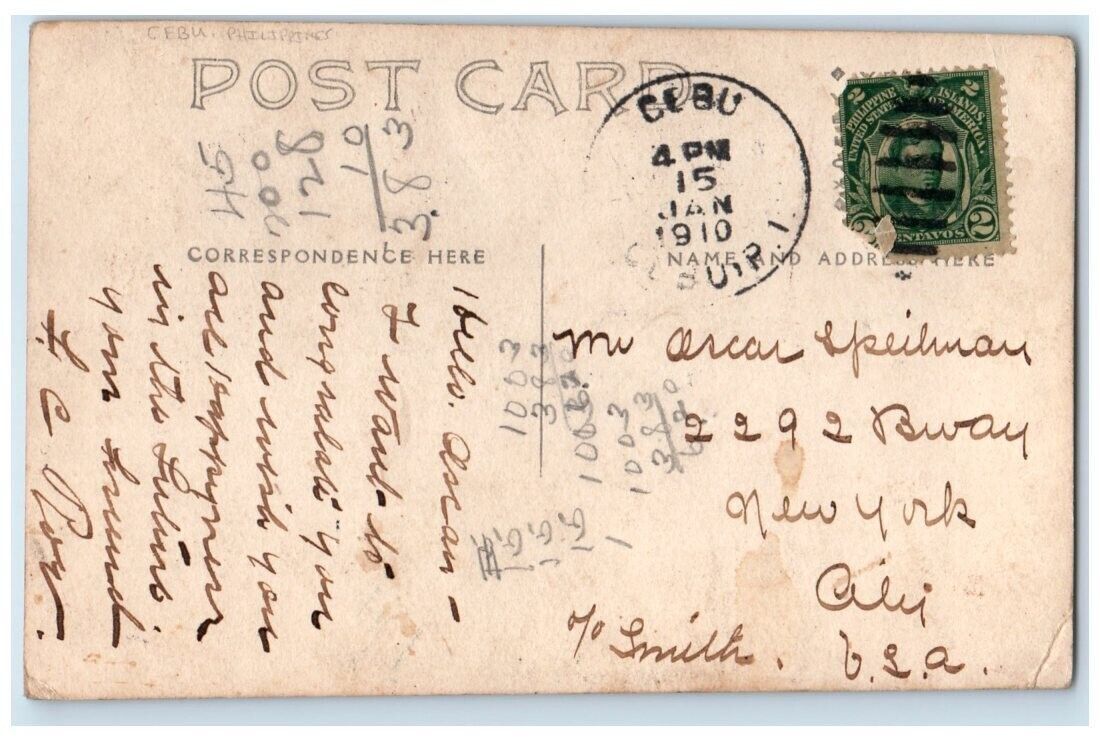 CEBU. PHILIPPINES
POST CARD
CEBU
4 PM
15
JAN
1910
CEBU, P. I.
2 PHILIPPINE ISLANDS 2
UNITED STATES OF AMERICA
2 CENTAVOS 2
45
128
10
3.83
CORRESPONDENCE HERE
NAME AND ADDRESS HERE
Hello. Oscar –
I want to
congratulate you
and wish you
all happyness
in the future
your friend
F. C. Roy.
1003
383
620
1003
383
620
Mr Oscar Speilman
2292 Bway
New York
City
c/o Smith. U.S.A.